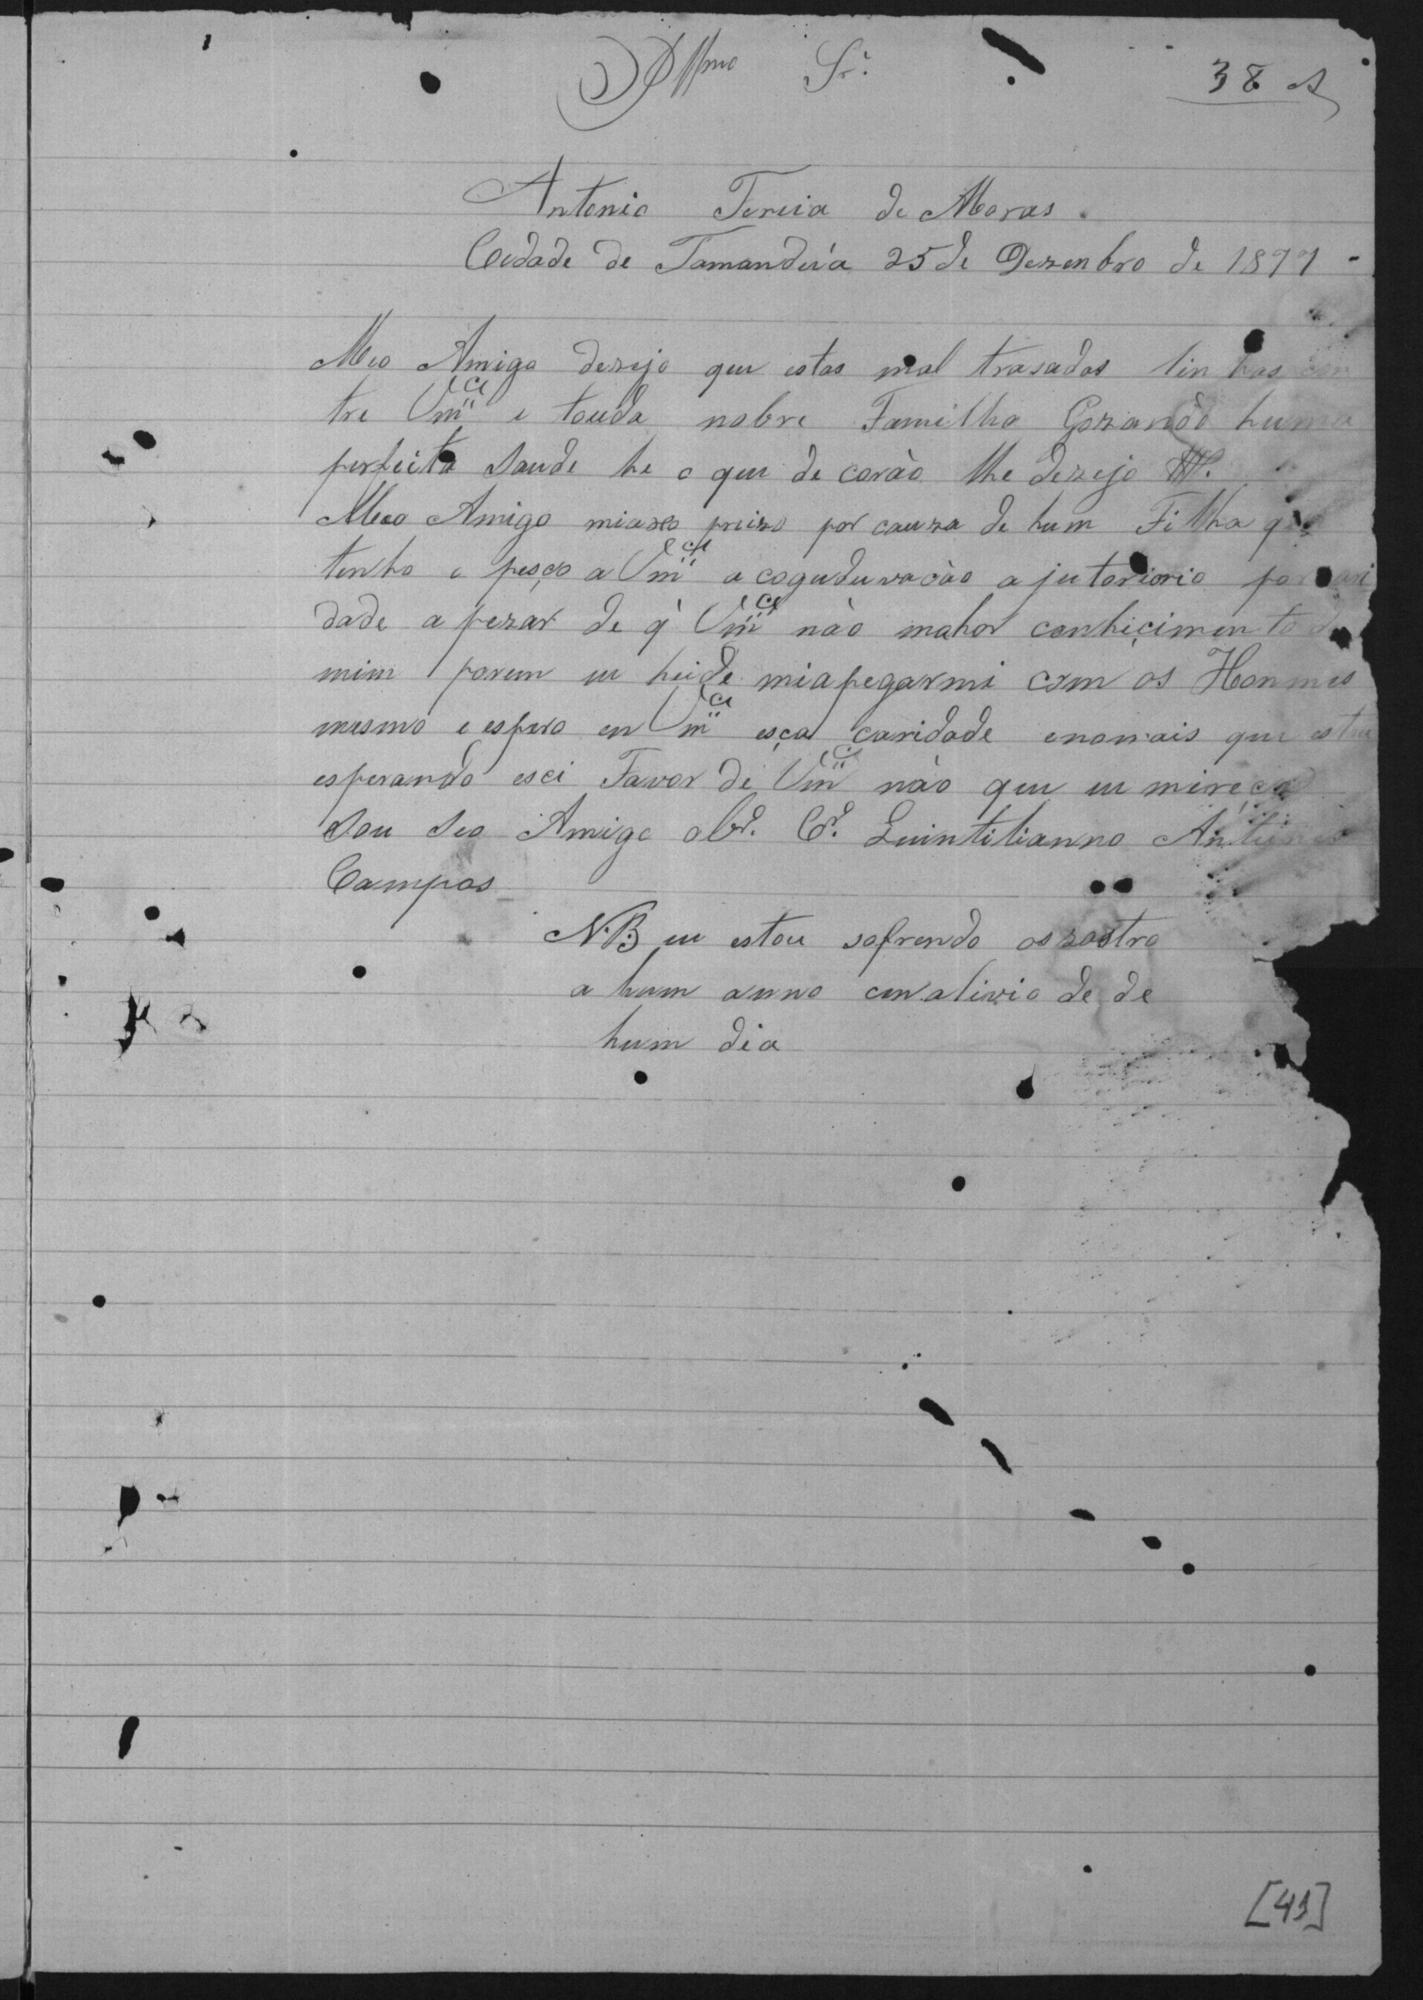 Illmo Sr.
38 A
Antonio Tereia de Moras.
Cidade de Tamandúa 25 de Dezenbro de 1897
Meo Amigo dezejo que estas mal trasadas linhas con
tre Vmce e touda nobre Familha Gozando huma
perfeita Saude he o que de corão lhe dezejo
Meo Amigo miaxo preizo por cauza de hum Filho q
tenho e pesço a Vmce a coguduvacão ajutoriorio por cari
dade apezar de q' Vmce não mahor conhiçimento d
mim porem eu heide miapegarmi com os Honmes
mesmo e espero en Vmce esça caridade enomais que estou
esperando esci Favor de Vmce não que eu mireça
Sou Seo Amigo obr. Cr. Quintilianno Antunes
Campos
N.B eu estou sofrendo os rostro
a hum anno cen alivio de de
hum dia
[41]